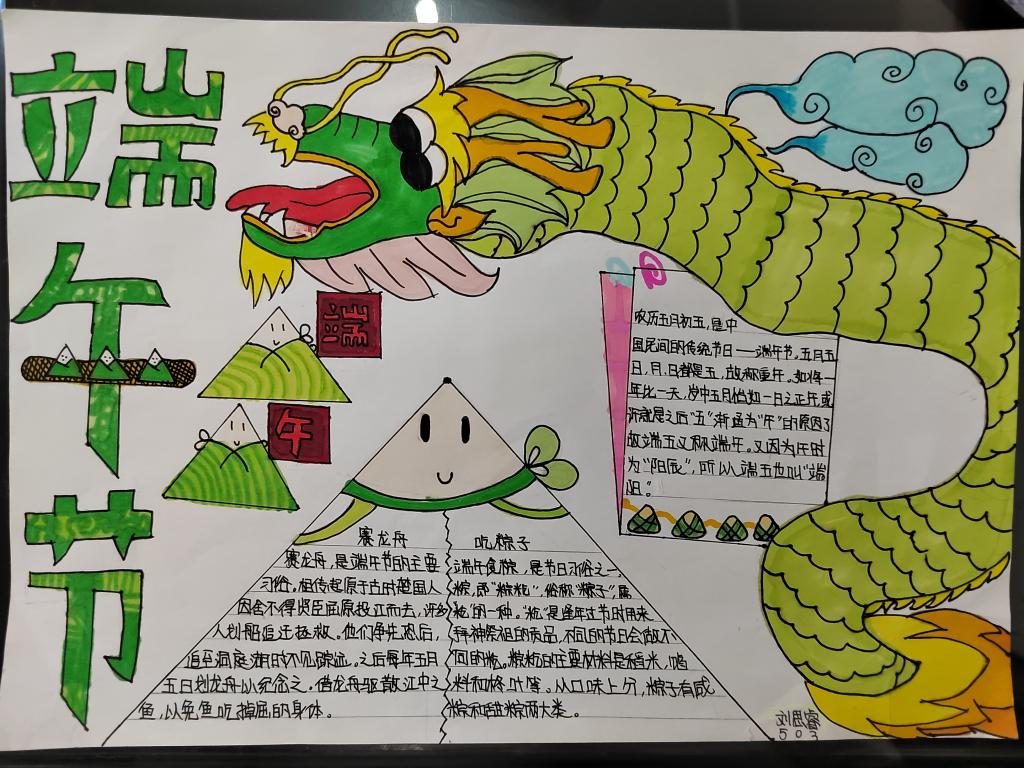 端午节
端
午
农历五月初五,是中
国民间的传统节日——端午节。五月五
日,月、日都是五,故称重午。如将一
年比一天,岁中五月恰如一日之正午,或
许就是之后"五"渐通为"午"的原因了
故端五又称端午。又因为午时
为"阳辰",所以端五也叫"端
阳"。
赛龙舟
赛龙舟,是端午节的主要
习俗。相传起原于古时楚国人
因舍不得贤臣屈原投江而去,许多
人划船追赶拯救。他们争先恐后,
追至洞庭湖时不见踪迹。之后每年五月
五日划龙舟以纪念之。借龙舟驱散江中之
鱼,以免鱼吃掉屈的身体。
吃粽子
端午食粽,是节日习俗之一
粽,即"粽籺",俗称"粽子",属
籺的一种。"籺"是逢年过节时用来
拜神祭祖的贡品,不同的节日会做不
同的籺。粽籺的主要材料是稻米、馅
料和柊叶等。从口味上分,粽子有咸
粽和甜粽两大类。
刘思睿
503